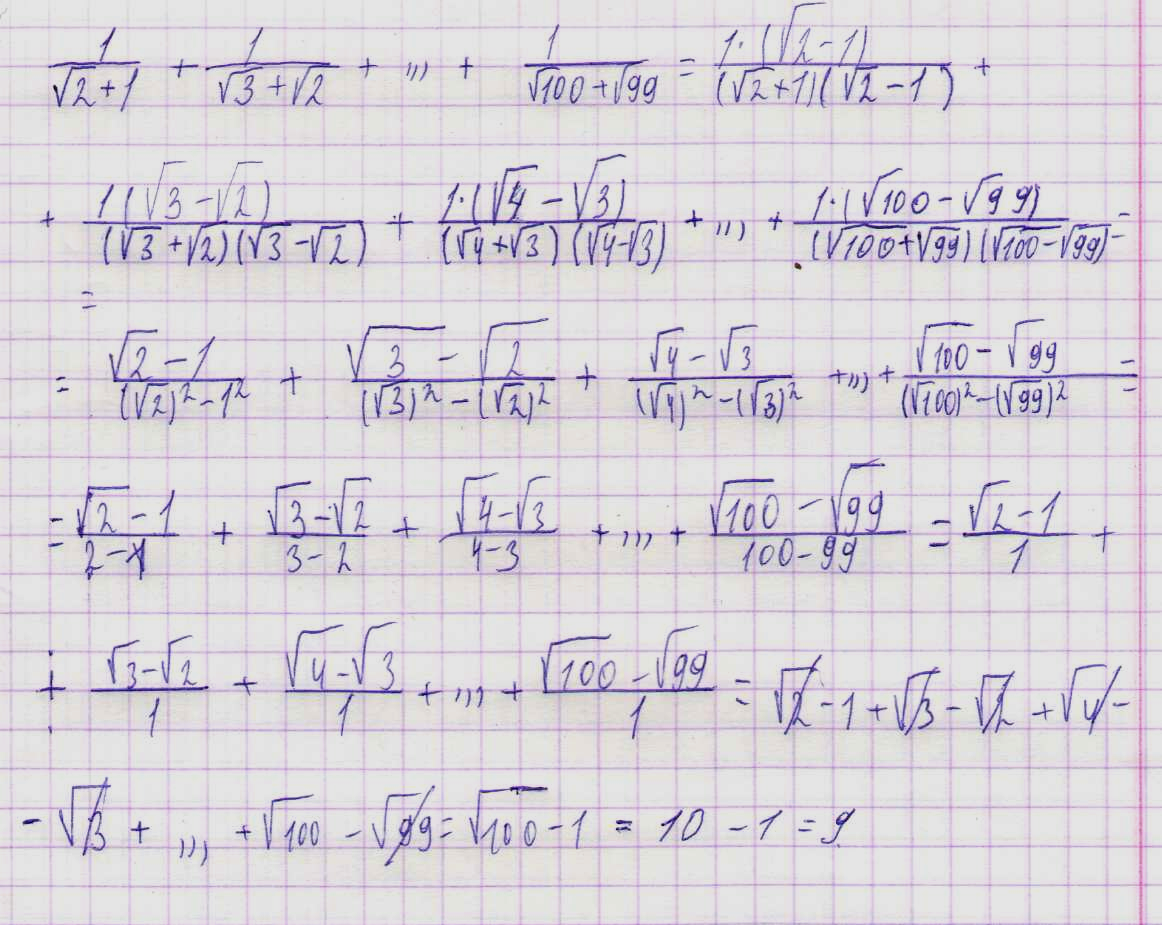 1/(√2+1) + 1/(√3+√2) + ,,, + 1/(√100+√99) = 1·(√2-1)/((√2+1)(√2-1)) +
+ 1(√3-√2)/((√3+√2)(√3-√2)) + 1·(√4-√3)/((√4+√3)(√4-√3)) + ,,, + 1·(√100-√99)/((√100+√99)(√100-√99)) =
=
= (√2-1)/((√2)²-1²) + (√3-√2)/((√3)²-(√2)²) + (√4-√3)/((√4)²-(√3)²) + ,,, + (√100-√99)/((√100)²-(√99)²) =
= (√2-1)/(2-1) + (√3-√2)/(3-2) + (√4-√3)/(4-3) + ,,, + (√100-√99)/(100-99) = (√2-1)/1 +
+ (√3-√2)/1 + (√4-√3)/1 + ,,, + (√100-√99)/1 = √2-1+√3-√2+√4-
-√3 + ,,, + √100 - √99 = √100-1 = 10-1 = 9